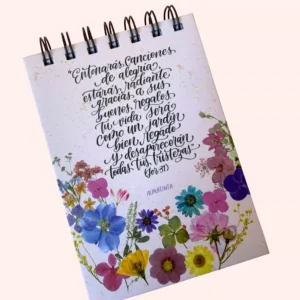 "Entonarás canciones
de alegría,
estarás radiante
gracias a sus
buenos regalos
Tu vida será
como un jardín
bien regado
y desaparecerán
todas tus tristezas"
(Jer. 31)